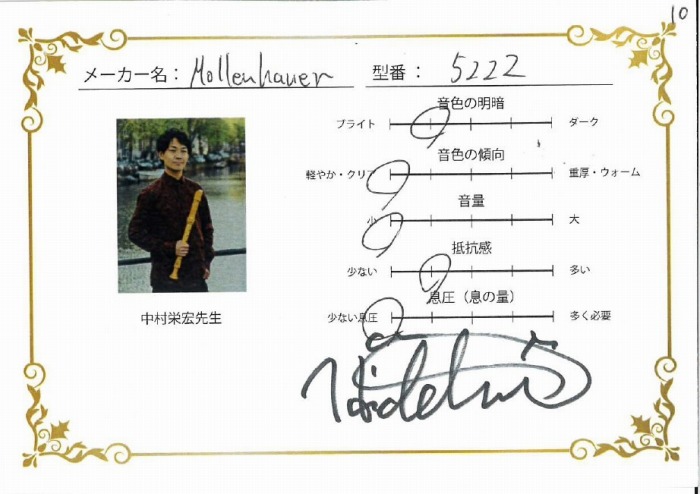 10
メーカー名: Mollenhauer 型番: 5222
音色の明暗
ブライト ダーク
音色の傾向
軽やか・クリア 重厚・ウォーム
音量
小 大
抵抗感
少ない 多い
息圧(息の量)
少ない息圧 多く必要
中村栄宏先生